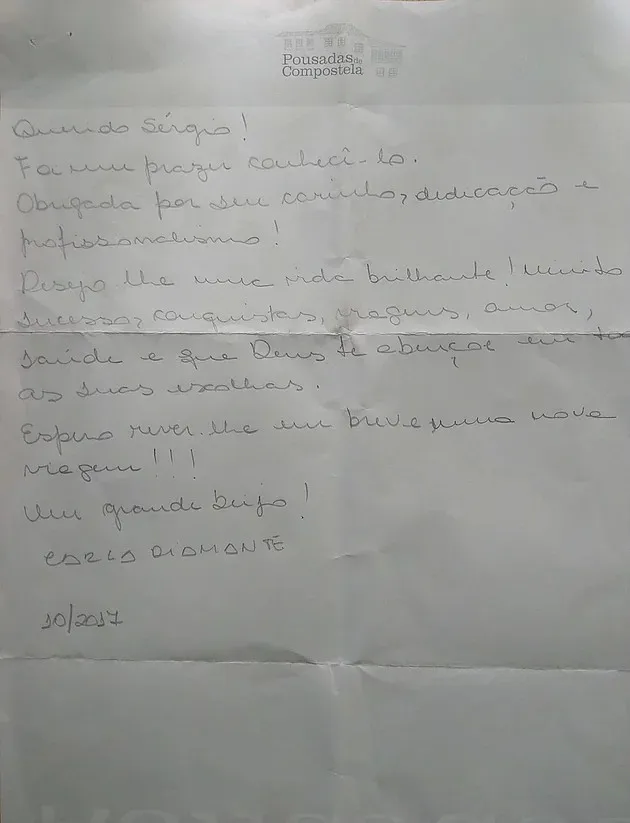 Pousadas de
Compostela
Querido Sérgio!
Foi um prazer conhecê-lo.
Obrigada por seu carinho, dedicação e
profissionalismo!
Desejo-lhe uma vida brilhante! Muito
sucesso, conquistas, viagens, amor,
saúde e que Deus te abençoe em
as suas escolhas.
Espero rever-lhe em breve numa nova
viagem!!!
Um grande beijo!
CARLA DIAMANTE
10/2017